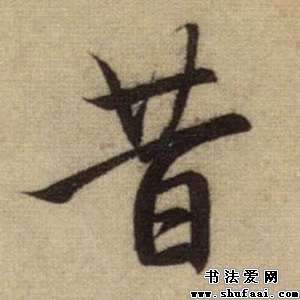 昔
书法爱网
www.shufaai.com